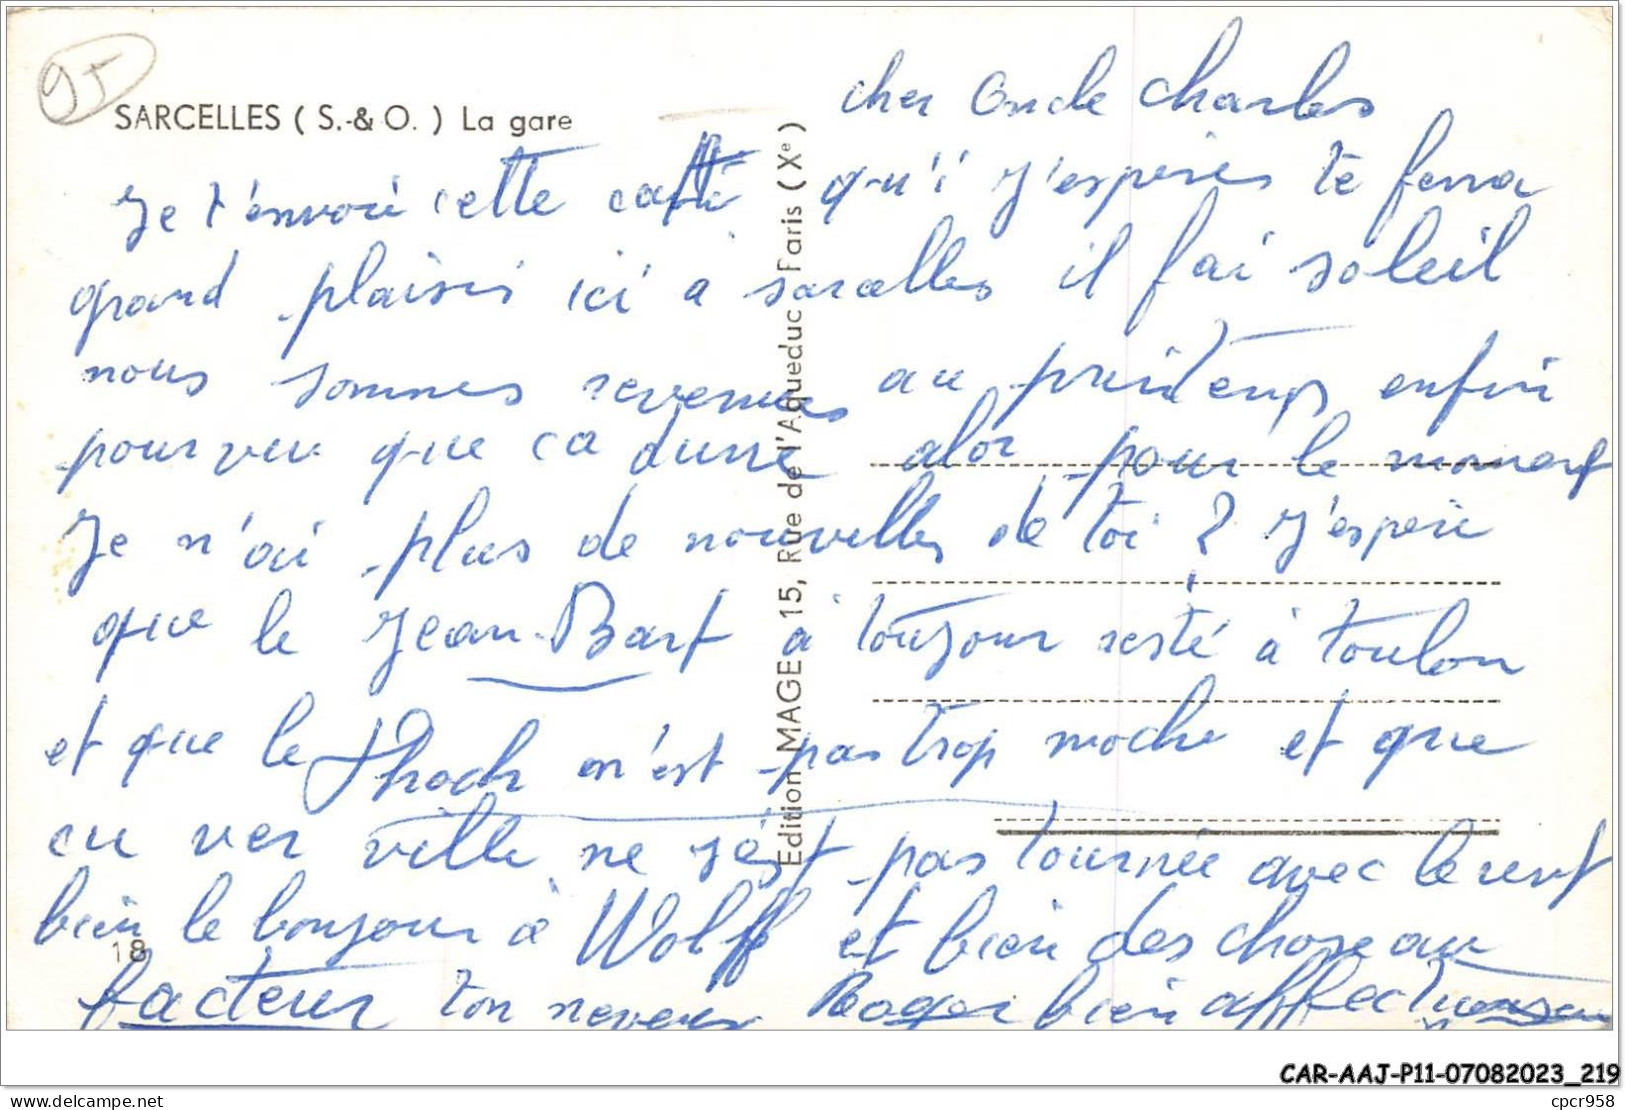 95
SARCELLES ( S.-& O. ) La gare
cher Oncle Charles
Je t'envoie cette carte qu'i J'esperes te ferra
grand plaisir ici a sarcelles il fai soleil
nous sommes revenues au printemps enfin
pourvu que ca durre alor pour le moment
Je n'ai plus de nouvelles de toi ? J'espere
que le Jean-Bart à toujour resté à toulon
et que le n'est pas trop moche et que
cu ver ville ne s'ést pas tournée avec le vent
bien le bonjour à Wolff et bien des chose au
facteur ton neveux Roger bien affectueusem
Edition MAGE 15, Rue de l'Aqueduc Paris (Xe)
18
CAR-AAJ-P11-07082023_219
delcampe.net
cpcr958